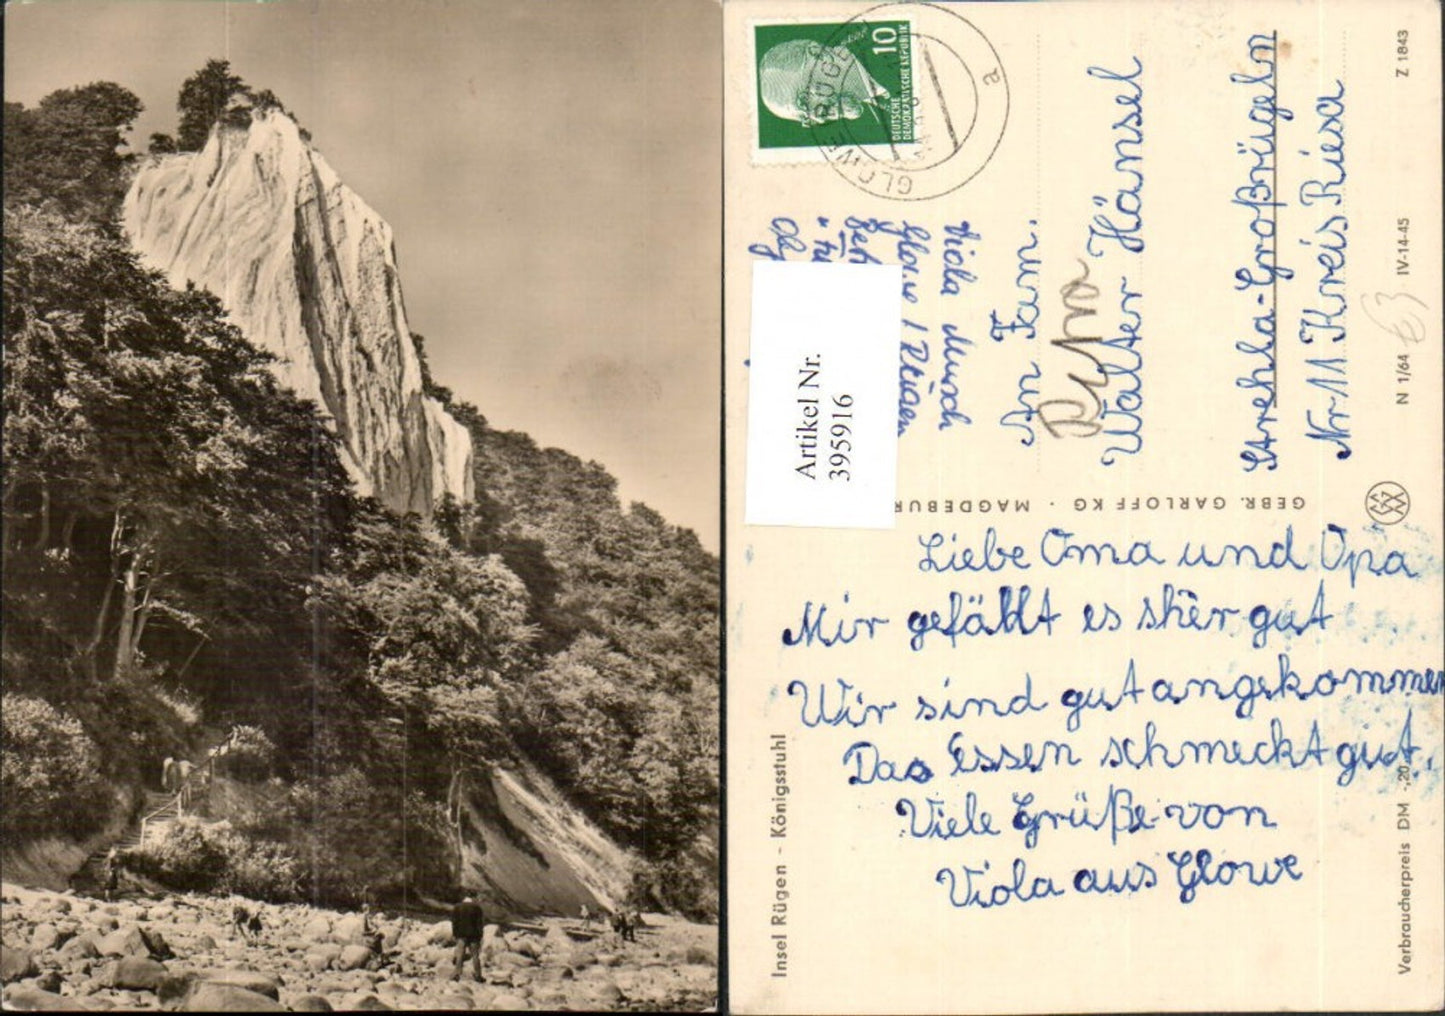 10
DEUTSCHE
DEMOKRATISCHE REPUBLIK
GLOWE
a
Viola Musch
Glowe / Rügen
Artikel Nr.
395916
An Fam.
Walter Hänsel
Strehla-Großrügeln
Nr 11 Kreis Riesa
Z 1843
IV-14-45
N 1/64
GEBR. GARLOFF KG · MAGDEBUR
Liebe Oma und Opa
Mir gefällt es sher gut
Wir sind gut angekommen
Das Essen schmeckt gut.
Viele Grüße von
Viola aus Glowe
Insel Rügen - Königsstuhl
Verbraucherpreis DM -,20